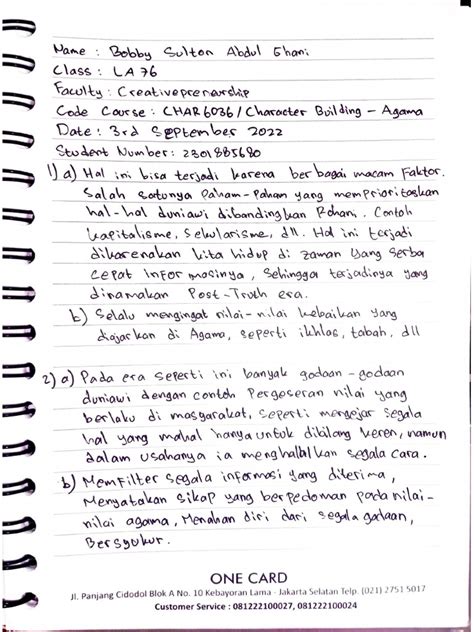 Name : Bobby Sulton Abdul Ghani
Class : LA 76
Faculty : Creativeprenership
Code Course : CHAR6036 / Character Building - Agama
Date : 3rd September 2022
Student Number : 2301885680
1) a) Hal ini bisa terjadi karena berbagai macam Faktor.
Salah satunya Paham-Paham yang memprioritaskan
hal-hal duniawi dibandingkan Rohani. Contoh
kapitalisme, Sekularisme, dll. Hal ini terjadi
dikarenakan kita hidup di zaman yang serba
cepat informasinya, Sehingga terjadinya yang
dinamakan Post-Truth era.
b) Selalu mengingat nilai-nilai kebaikan yang
diajarkan di Agama, seperti ikhlas, tabah, dll
2) a) Pada era seperti ini banyak godaan-godaan
duniawi dengan contoh Pergeseran nilai yang
berlaku di masyarakat, seperti mengejar segala
hal yang mahal hanya untuk dibilang keren, namun
dalam usahanya ia menghalalkan segala cara.
b) Memfilter segala informasi yang diterima,
Menyatakan sikap yang berpedoman pada nilai-
nilai agama, Menahan diri dari segala godaan,
Bersyukur.
ONE CARD
Jl. Panjang Cidodol Blok A No. 10 Kebayoran Lama - Jakarta Selatan Telp. (021) 2751 5017
Customer Service : 081222100027, 081222100024